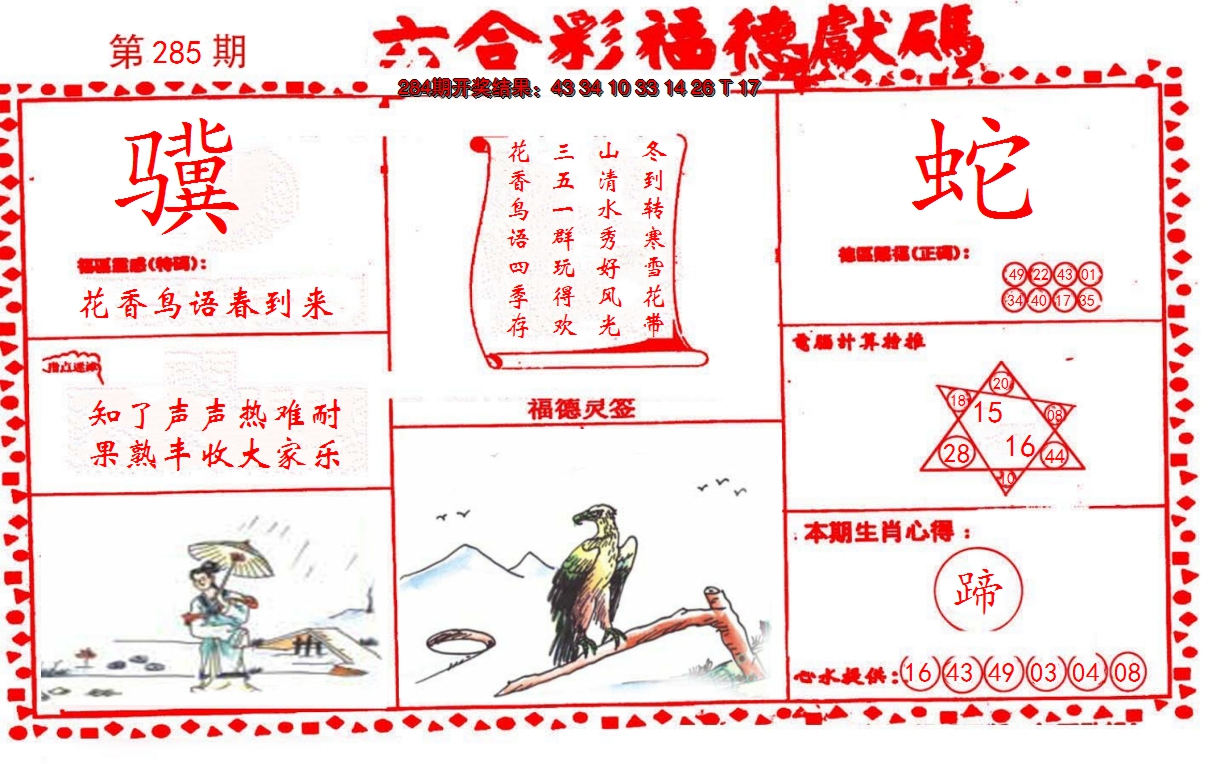 第 285 期
六合彩福德獻碼
284期开奖结果：43 34 10 33 14 26 T 17
骥
福區靈感(特碼)：
花香鸟语春到来
指点迷津
知了声声热难耐
果熟丰收大家乐
冬到转寒雪花带
山清水秀好风光
三五一群玩得欢
花香鸟语四季存
福德灵签
蛇
德區賜福(正碼)：
49 22 43 01
34 40 17 35
電腦計算給推
20
18 15 08
28 16 44
10
本期生肖心得：
蹄
心水提供：16 43 49 03 04 08